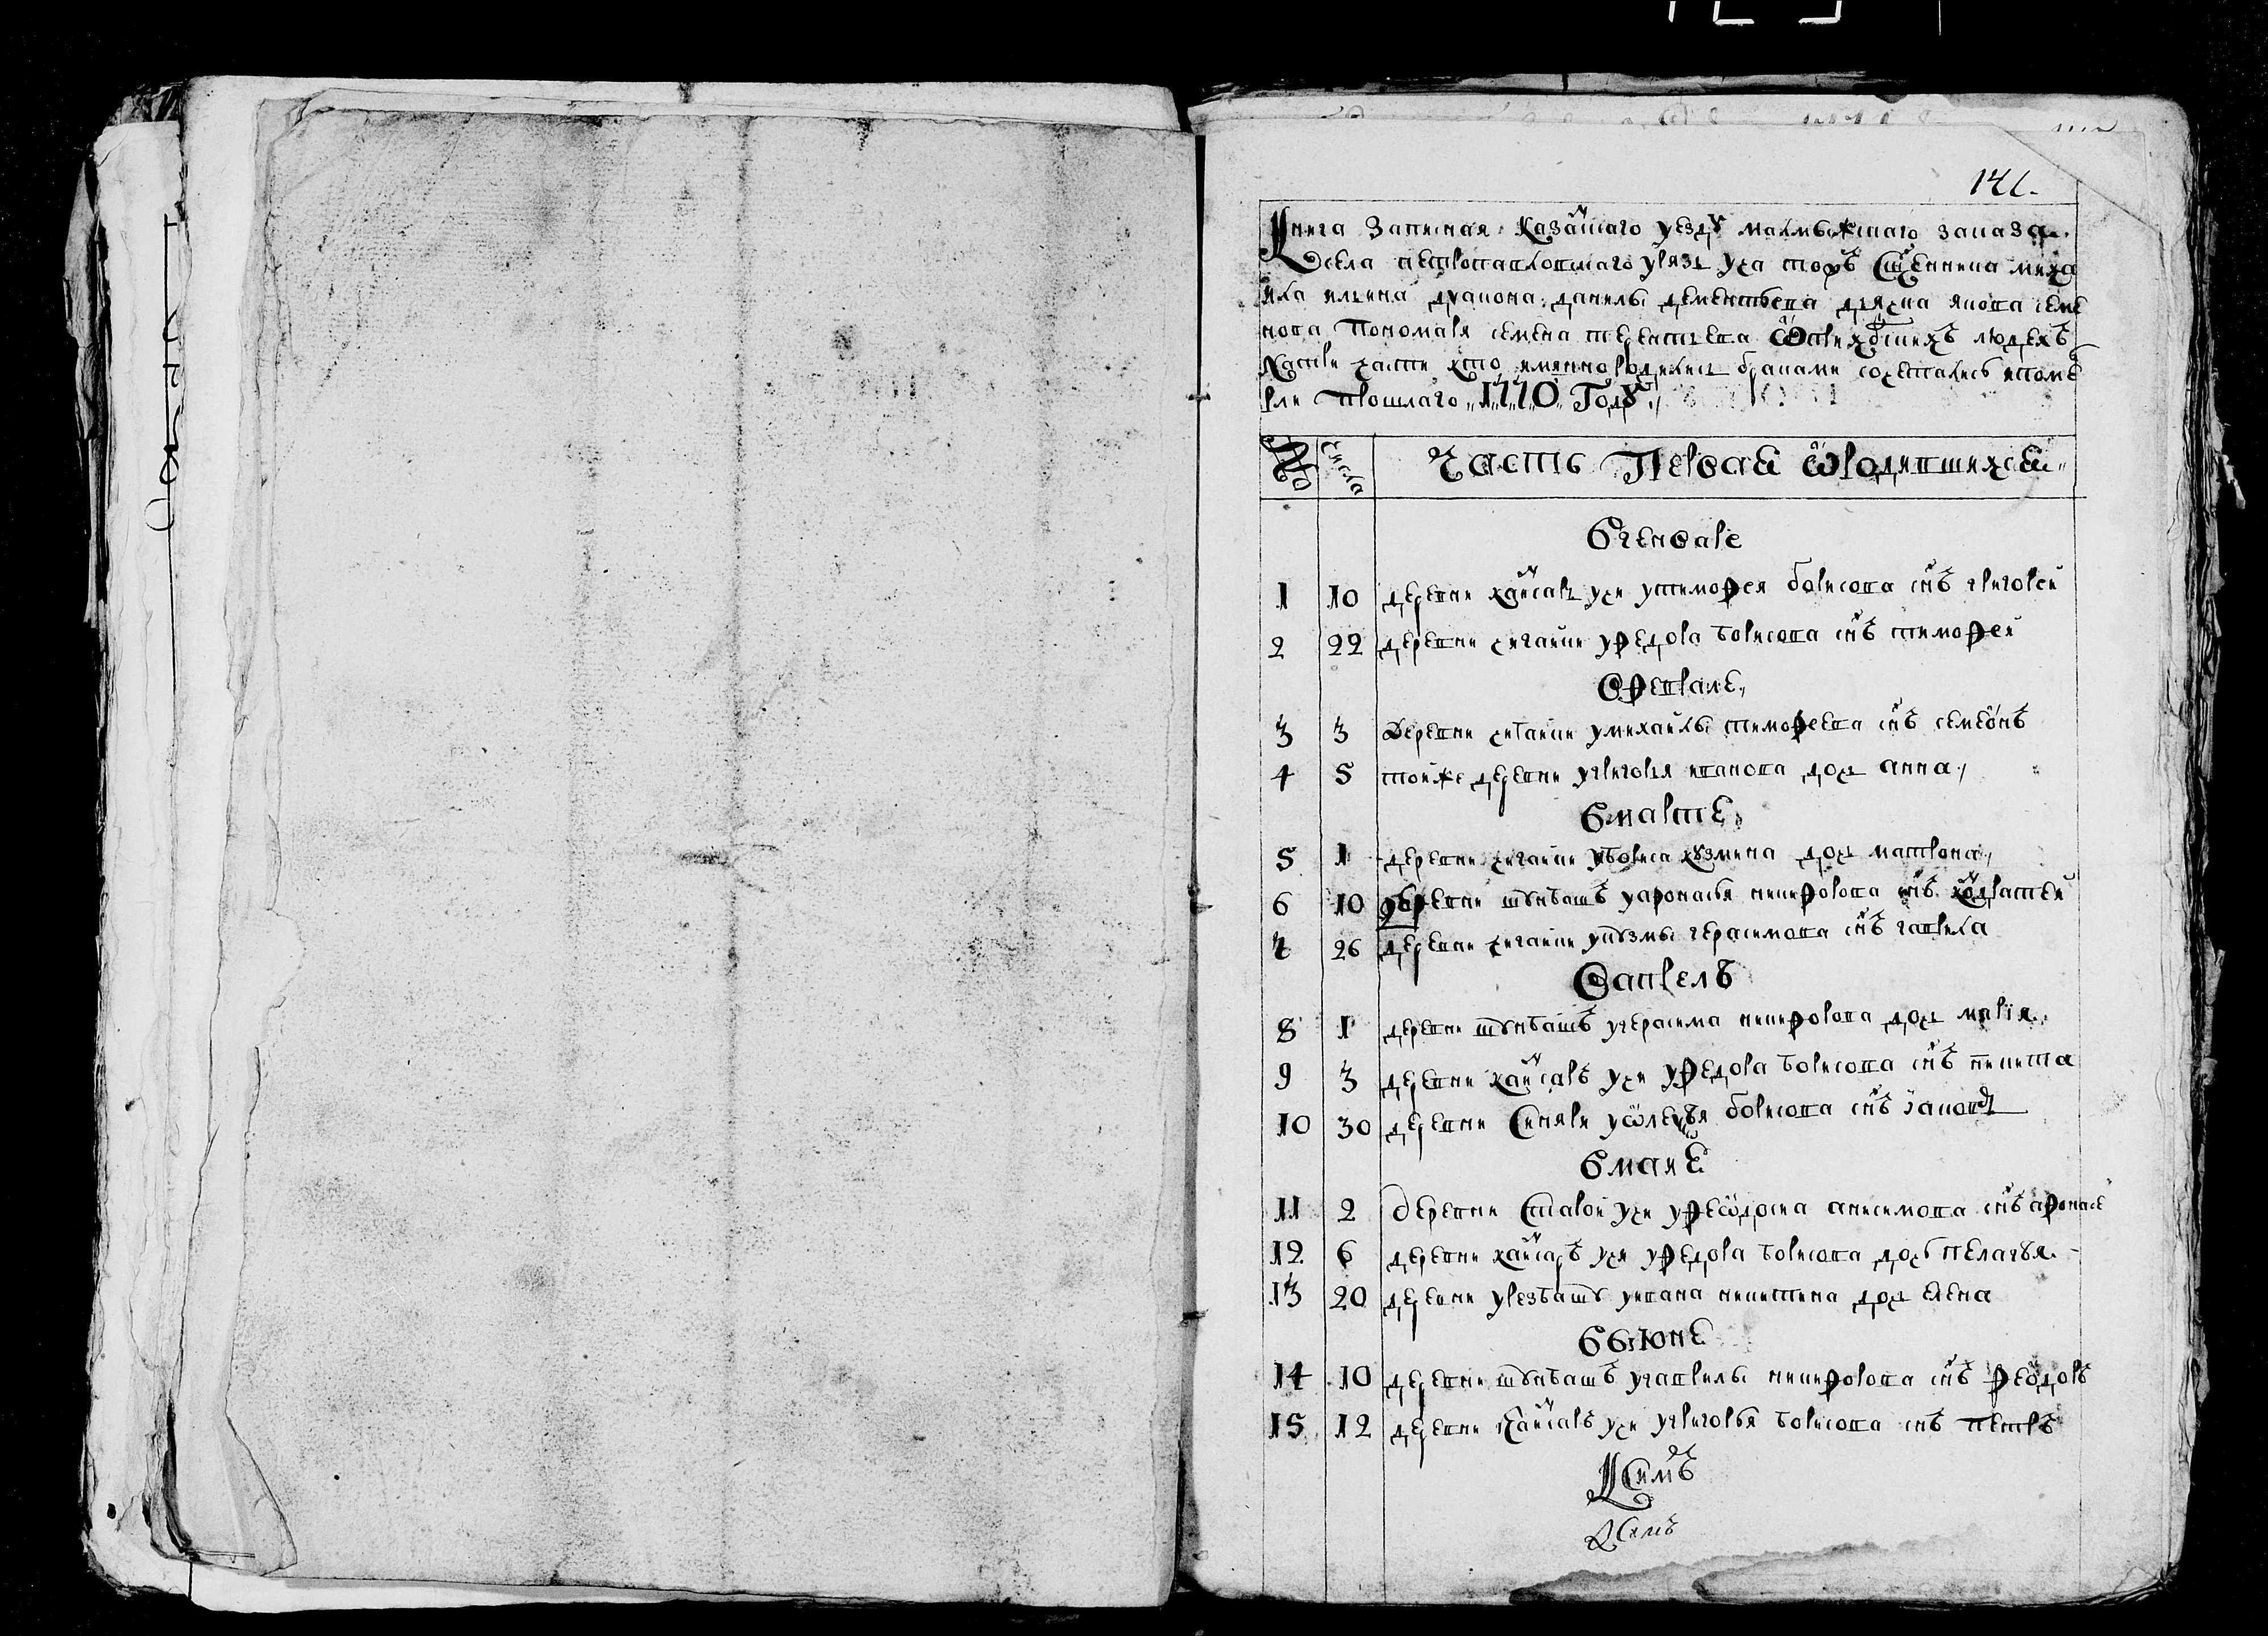 141.
Книга Записная Казанскаго уезду малмыжскаго заказа
села петропавловскаго урязь уча тожъ Священника миха
ила ильина диакона данилы дементьева дьячка якова семе
нова Пономаря семена терентьева
Натри части кто имянно родились браками сочетались ипоме
рли Прошлаго 1770 Году
№ Число Часть Первая ѡродившихся
Вгенваре
1 10 деревни уки утимофея борисова снъ григореи
2 22 деревни чигаики уфедора борисова снъ тимофеи
Вфеврале
3 3 Деревни чигаики умихаилы тимофеева снъ семеонъ
4 5 тоиже деревни угригорья иванова дочь анна
Вмарте
5 1 деревни чигаики убориса кузмина дочь матрона
6 10 деревни шунбашъ уафонасья никифорова снъ кондратеи
7 26 деревни чигаики укузмы герасимова снъ гаврила
Вапрель
8 1 деревни шунбашъ угерасима никифорова дочь мария
9 3 деревни уки уфедора борисова снъ никита
10 30 деревни Синяри борисова снъ иаковъ
Вмаие
11 2 деревни Старои уки анисимова снъ афонасе
12 6 деревни уки уфедора борисова дочь пелагъя
13 20 деревни урезбашъ уивана никитина дочь елена
Ввиюне
14 10 деревни шунбашъ угаврилы никифорова снъ феѡдоръ
15 12 деревни уки угригорья борисова снъ петръ
Ксимъ
Ксимъ